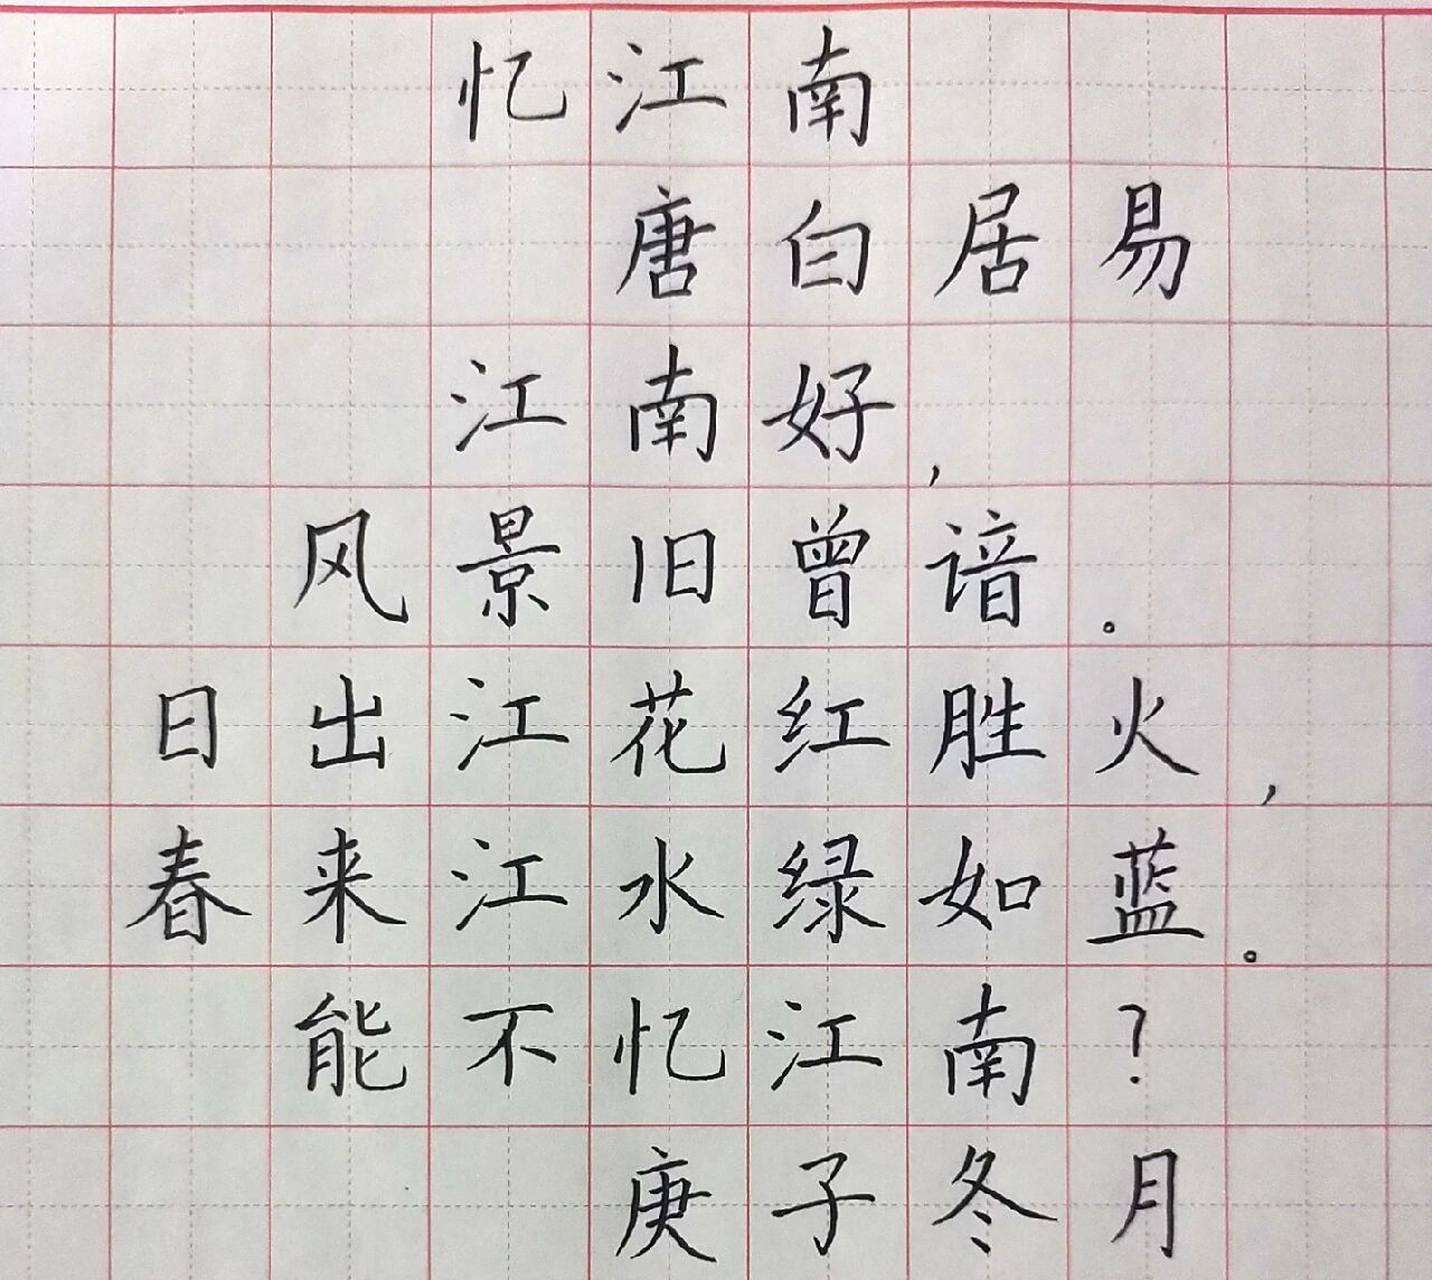 忆江南
唐白居易
江南好，
风景旧曾谙。
日出江花红胜火，
春来江水绿如蓝。
能不忆江南？
庚子冬月